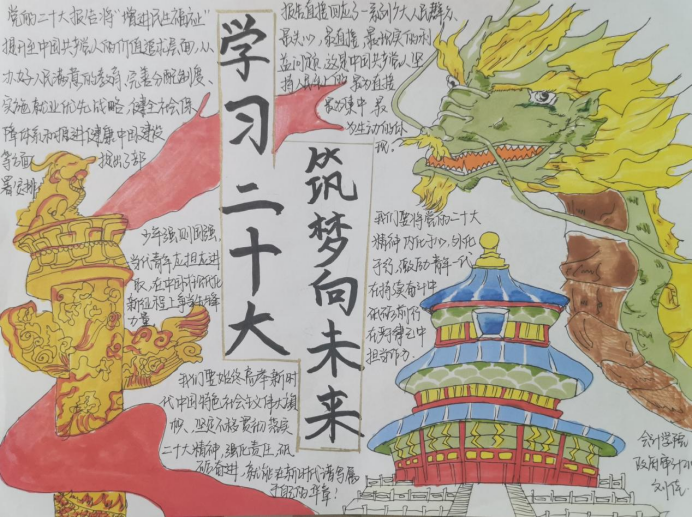 学习二十大
筑梦向未来
党的二十大报告将“增进民生福祉”
提升至中国共产党人的价值追求层面,从
办好人民满意的教育、完善分配制度、
实施就业优先战略、健全社会保
障体系和推进健康中国建设
等方面 提出了部
署安排
报告直接回应了一系列广大人民群众
最关心、最直接、最现实的利
益问题,这是中国共产党人坚
持人民至上的最为直接
最为集中、最
为生动的体
现。
少年强则国强,
当代青年应担左进
取,在中国式现代化
新征程上争当生力军
力量
我们要将党的二十大
精神内化于心、外化
于行,激励青年一代
在踔厉奋斗中
担当作为.
我们要始终高举新时
代中国特色社会主义伟大旗
帜、坚定不移贯彻落实
二十大精神,强化责任,砥
砺奋进,就能在新时代谱写属
于我们的华章!
会计学院
政府审计